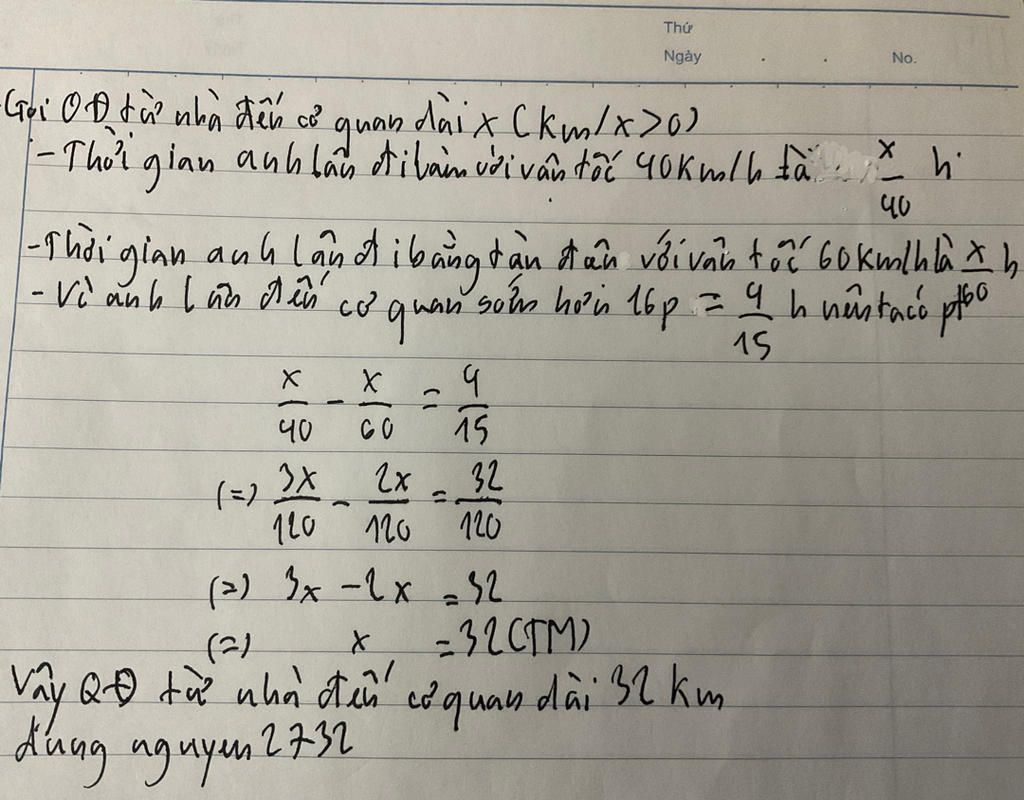 Thứ
Ngày . . No.
Gọi QĐ từ nhà đến cơ quan dài x (km/x>0)
- Thời gian anh lân đi làm với vân tốc 40km/h là x/40 h
- Thời gian anh lân đi bằng tàn đân với vân tốc 60km/h là x/60 h
- Vì anh lân đến cơ quan sớm hơn 16p = 4/15 h nên ta có pt
x/40 - x/60 = 4/15
(=) 3x/120 - 2x/120 = 32/120
(=) 3x - 2x = 32
(=) x = 32 (TM)
Vây QĐ từ nhà đến cơ quan dài 32 km
dung nguyen 2732